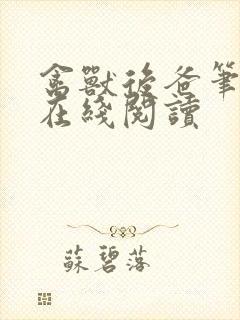 禽獸後爸筆
在綫閱讀
蘇碧落